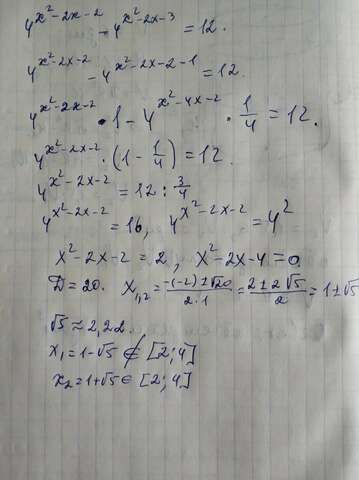 4^{x²-2x-2} - 4^{x²-2x-3} = 12.
4^{x²-2x-2} - 4^{x²-2x-2-1} = 12.
4^{x²-2x-2} · 1 - 4^{x²-4x-2} · 1/4 = 12.
4^{x²-2x-2} · (1 - 1/4) = 12.
4^{x²-2x-2} = 12 : 3/4
4^{x²-2x-2} = 16, 4^{x²-2x-2} = 4²
x² - 2x - 2 = 2, x² - 2x - 4 = 0.
D = 20. x₁,₂ = (-(-2) ± √20)/(2·1) = (2 ± 2√5)/2 = 1 ± √5
√5 ≈ 2,22.
x₁ = 1 - √5 ∉ [2; 4]
x₂ = 1 + √5 ∈ [2; 4]